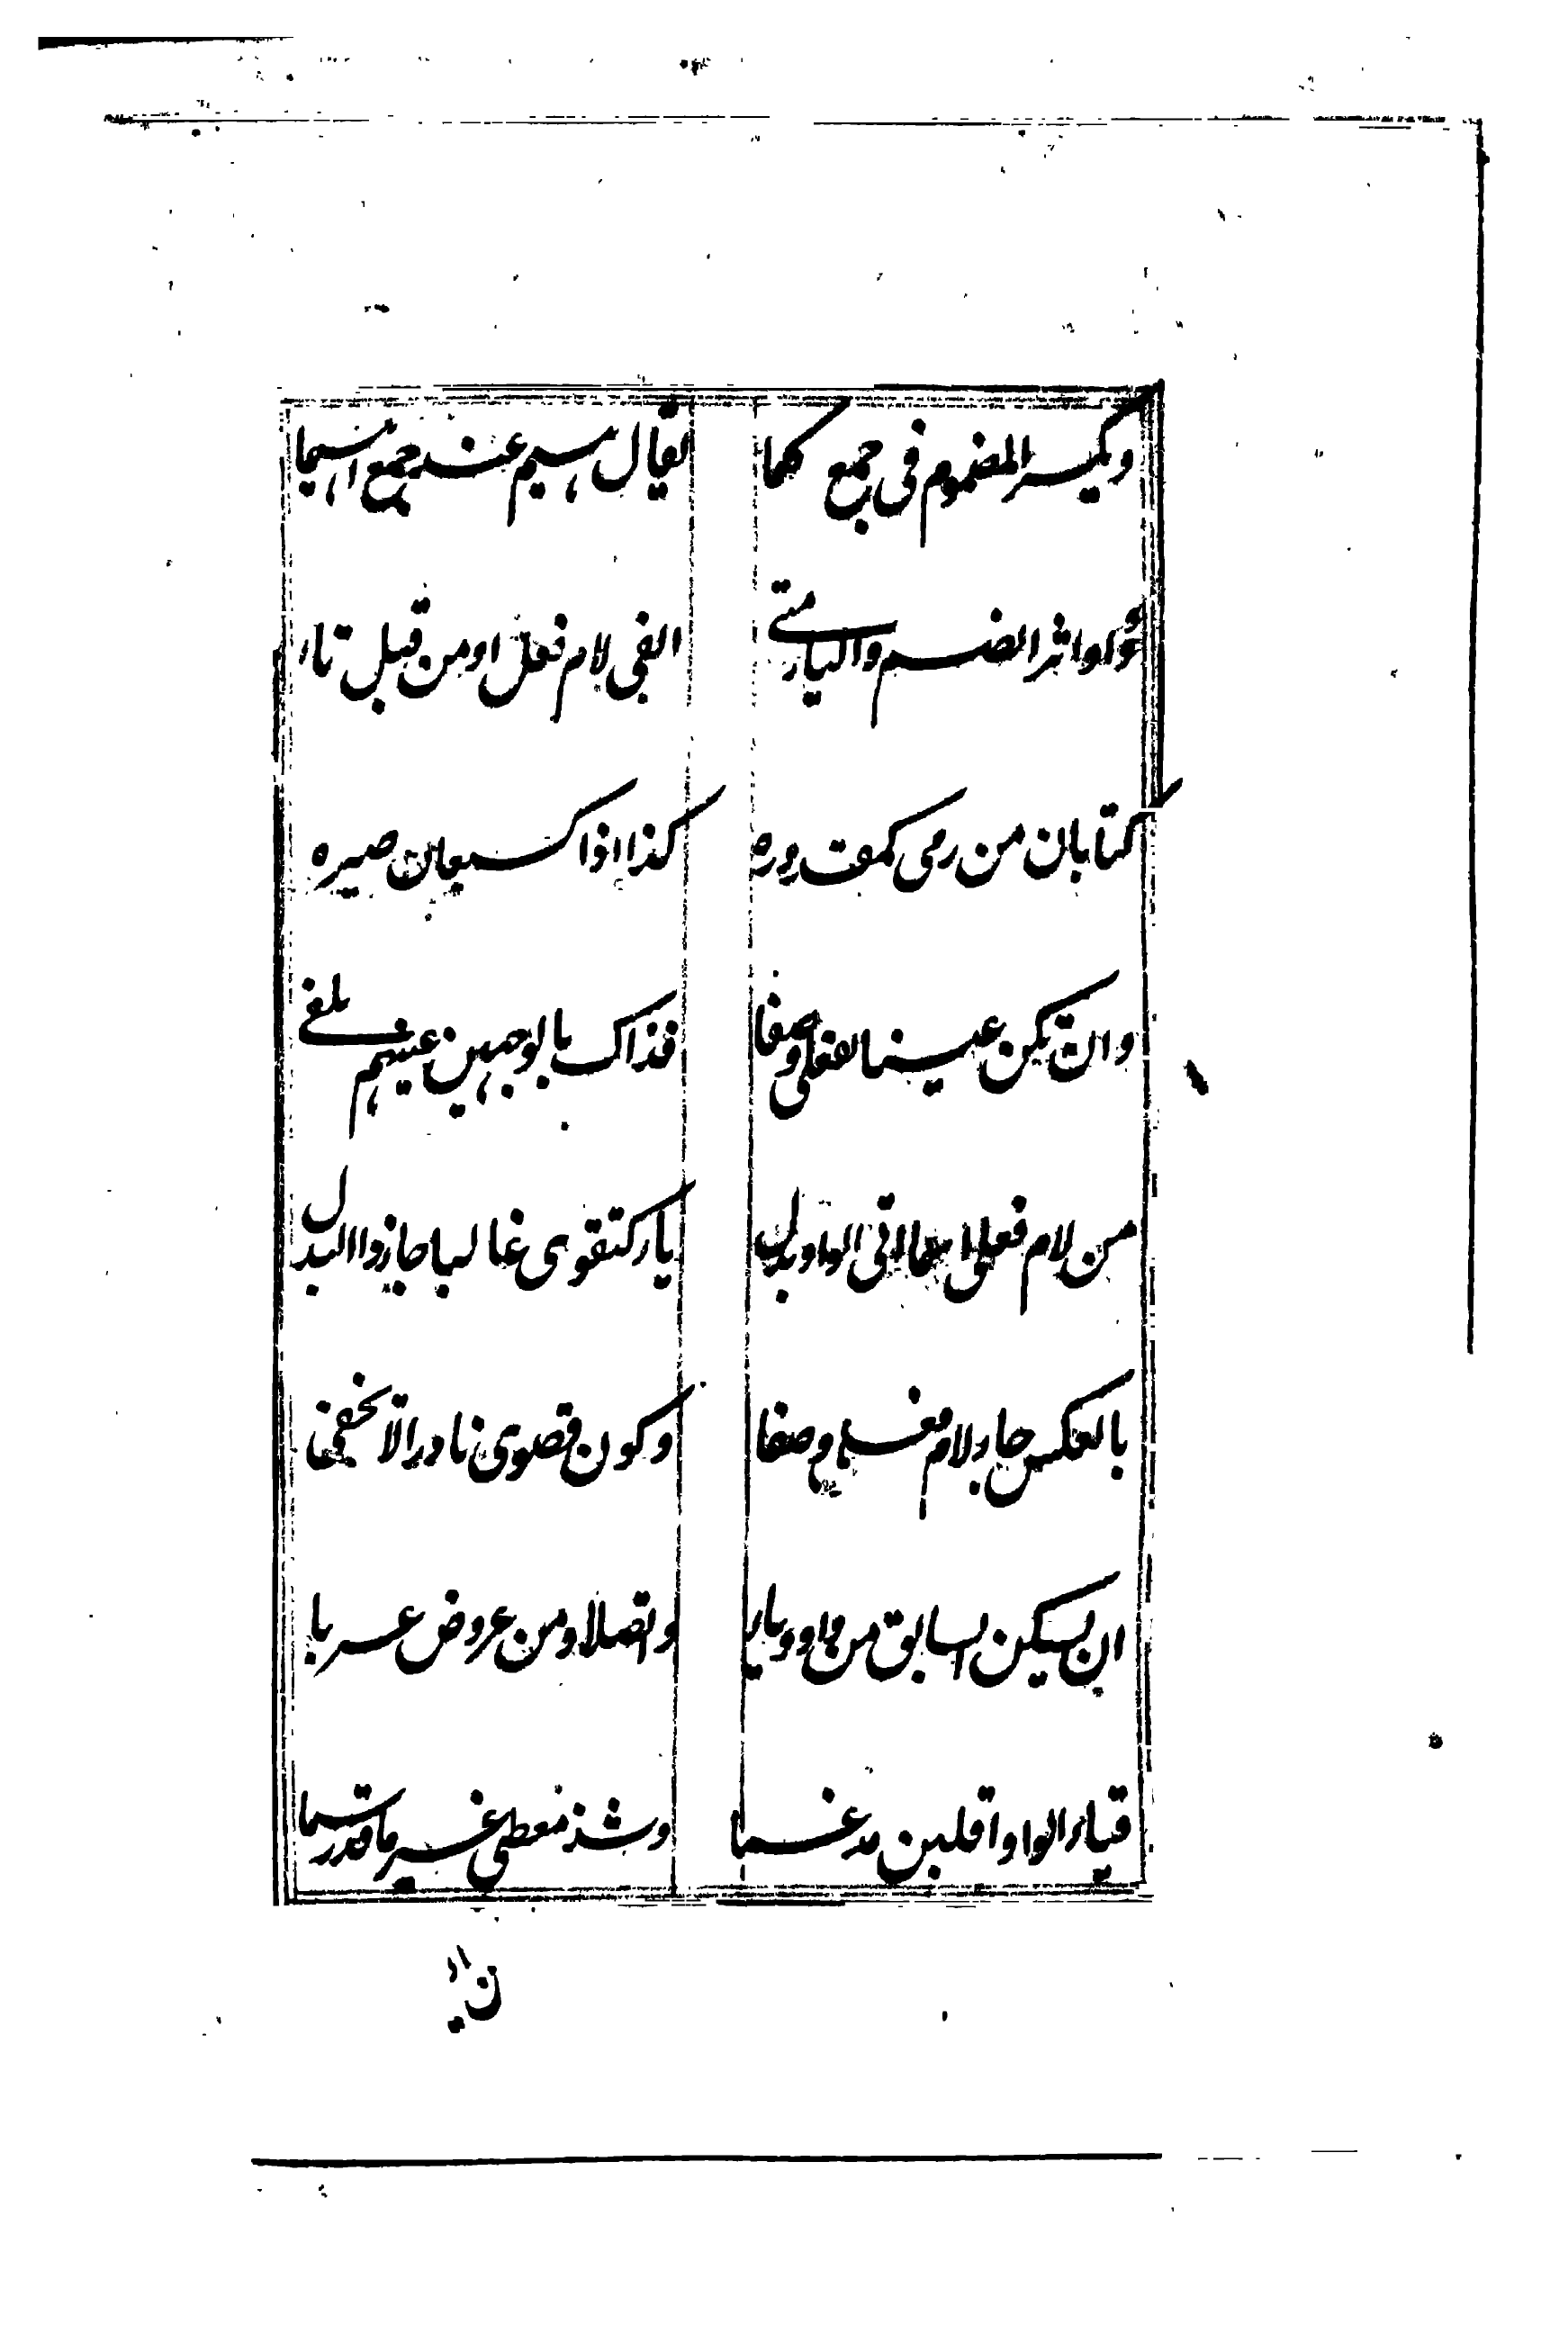 ويكسر المضموم في جمع كما يقال هيم عند جمع اهيما
وواوا اثر الضم رد اليا متى الفي لام فعل او من قبل تاء
كتا بان من رمى كمقدره كذا اذا كسبعان صيره
وان تكن عينا لفعلى وصفا فذاك بالوجهين عنهم يلفى
من لام فعلى اسما اتى الواو بدل ياء كتقوى غالبا جا ذوا البدل
بالعكس جاء لام فعلى وصفا وكون قصوى نادرا لا يخفى
ان يسكن السابق من واو ويا واتصلا ومن عروض عريا
فياء الواو اقلبن مدغما وشذ معطى غير ما قد رسما